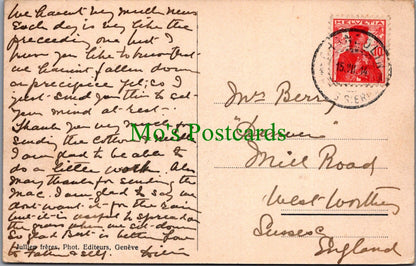 We haven't very much news
Each day is very like the
preceeding one but I
know you like to know that
we haven't fallen down
a precipice yet; so I
just send you this to set
your mind at rest.
Thank you very much for
sending the cotton
I am glad to be able to
do a little work. Also
many thanks for sending the
mac. I am glad to say we
don't want it for the rain
but it is useful to spread on
the grass when we sit down.
So glad Bert is better. Love
to Father & self.
Mrs Berry
Mill Road
West Worthing
Sussex
England
HELVETIA
Mo's Postcards
Jullien frères, Phot. Editeurs, Genève